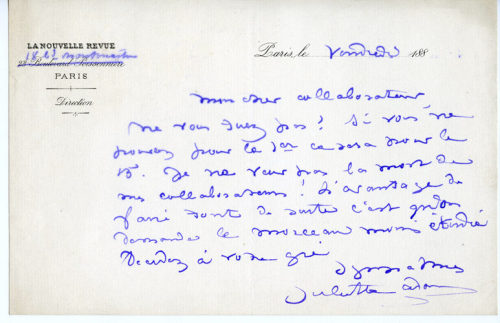 LA NOUVELLE REVUE
18 Bd Montmartre
23 Boulevard Poissonnière
PARIS
Direction
Paris, le Vendredi 188
mon cher collaborateur,
ne vous tuez pas ! Si vous ne
pouvez pour le 1er ce sera pour le
15. Je ne veux pas la mort de
mes collaborateurs ! L'avantage de
faire tout de suite c'est qu'on
demande le morceau moins étendu
Décidez à votre gré
Juliette Adam